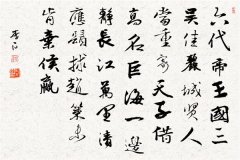 六代帝王國三
吳佳麗城賢人
當重寄天子借
高名巨海一邊
靜長江萬里清
應須救趙策未
肯棄侯嬴